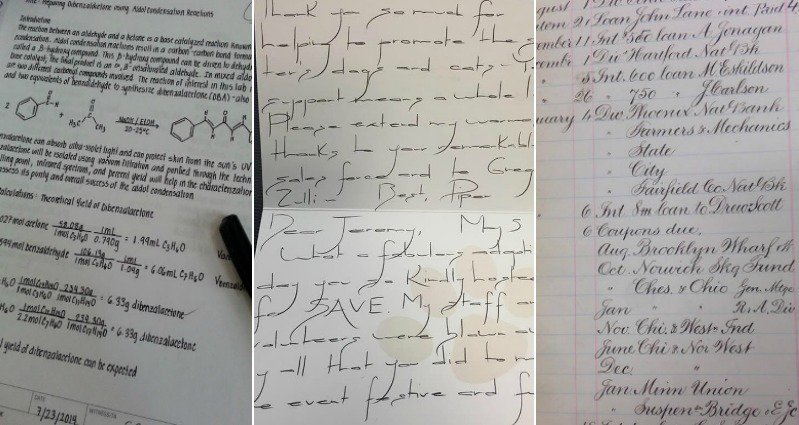 Preparing Dibenzalacetone using Aldol Condensation Reactions
Introduction
The reaction between an aldehyde and a ketone is a base catalyzed reaction known
condensation. Aldol condensation reactions result in a carbon-carbon bond forma
called a β-hydroxy compound. This β-hydroxy compound can be driven to dehydr
base catalyst, the final product is an α,β-unsaturated aldehyde. In mixed aldo
two different carbonyl compounds involved. The reaction of interest in this lab i
and two equivalents of benzaldehyde to synthesize dibenzalacetone (DBA) - also
2
H
H₃C CH₃
NaOH / EtOH
20-25°C
nzalacetone can absorb ultra-violet light and can protect skin from the sun's UV
zalacetone will be isolated using vacuum filtration and purified through the techn
lting point, infrared spectrum, and percent yield will help in the characterization
assess its purity and overall success of the aldol condensation.
alculations: Theoretical Yield of Dibenzalacetone
027mol acetone 58.08g 1ml = 1.99ml C₃H₆O
1mol C₃H₆O 0.790g
benzaldehyde 106.19g 1ml = 6.06ml C₇H₆O
1mol C₇H₆O 1.04g
H₆O 1mol C₁₇H₁₄O 234.30g = 6.33g dibenzalacetone
1mol C₃H₆O 1mol C₁₇H₁₄O
H₆O 1mol C₁₇H₁₄O 234.30g = 6.33g dibenzalacetone
2.2mol C₇H₆O 1mol C₁₇H₁₄O
yield of dibenzalacetone can be expected
DATE
7/23/2014
WITNESS/TA
Thank you so much for
helping to promote the s
tery dogs and cats. Y
support means a whole l
Please extend my warme
thanks to your remarkabl
sales force and to Greg
Zilli- Best, Piper
Dear Jeremy, My s
What a fabulous adopti
day you so kindly hosted
f SAVE. My staff a
volunteers were blown a
y all that you did to m
e event festive and f
gust 1 Div
tem 21 Loan John Lane int. Paid 4
ember 11 Int. 500 loan A. Jonagan
cembr 1 Div Hartford Nat Bk
" 5 Int. 600 loan M Eskildson
" 26 " 750 " J Carlson
nuary 4 Div Phoenix Nat Bank
" Farmers & Mechanics
" State
" City
" Fairfield Co Nat Bk
6 Int. 8m loan to Drew Scott
6 Coupons due.
Aug. Brooklyn Wharf &
Oct. Norwich Skg Fund
" Ches. & Ohio Gen. Mtge
Jan " R.A. Div
Nov. Chi. & West Ind
June Chi & Nor West
Dec. "
Jan. Minn Union
" Suspen Bridge & E